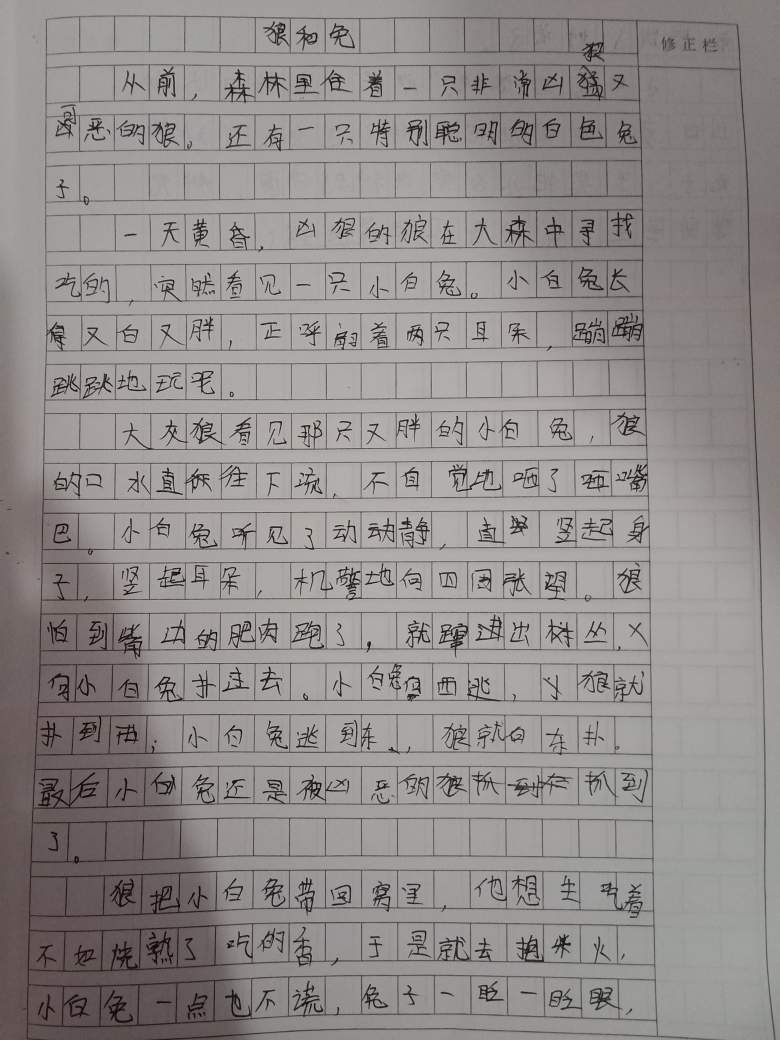 狼和兔
修正栏
从前，森林里住着一只非常凶狠又
可恶的狼。还有一只特别聪明的白色兔
子。
一天黄昏，凶狠的狼在大森中寻找
吃的，突然看见一只小白兔。小白兔长
得又白又胖，正呼着两只耳朵，蹦蹦
跳跳地玩耍。
大灰狼看见那只又胖的小白兔，狼
的口水直往下流，不自觉地哂了哂嘴
巴。小白兔听见了动动静，直竖起身
子，竖起耳朵，机警地向四周张望。狼
怕到嘴边的肥肉跑了，就蹿进出树丛，又
向小白兔扑过去。小白兔向西逃，狼就
扑到西；小白兔逃到东，狼就向东扑。
最后小白兔还是被凶恶的狼抓到
了。
狼把小白兔带回窝里，他想生吃着
不如烧熟了吃的香，于是就去抱柴火，
小白兔一点也不谎，兔子一眨一眨眼，